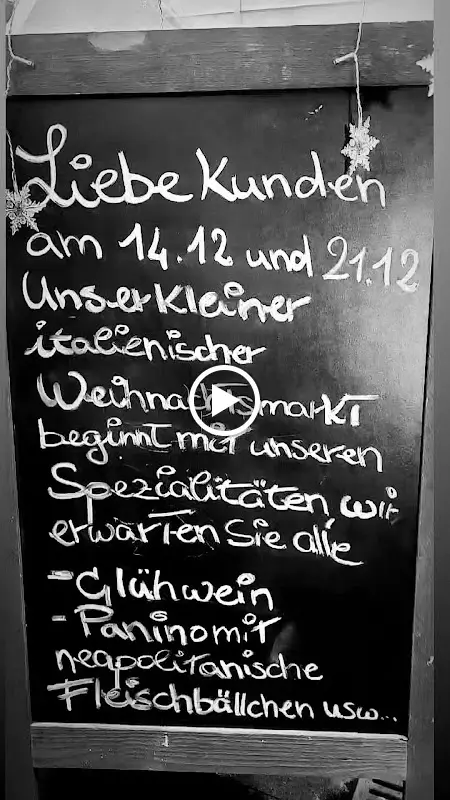 Liebe Kunden
am 14.12 und 21.12
Unser Kleiner
italienischer
Weihnachtsmarkt
beginnt mit unseren
Spezialitäten, wir
erwarten Sie alle
- Glühwein
- Panino mit
neapolitanische
Fleischbällchen usw...